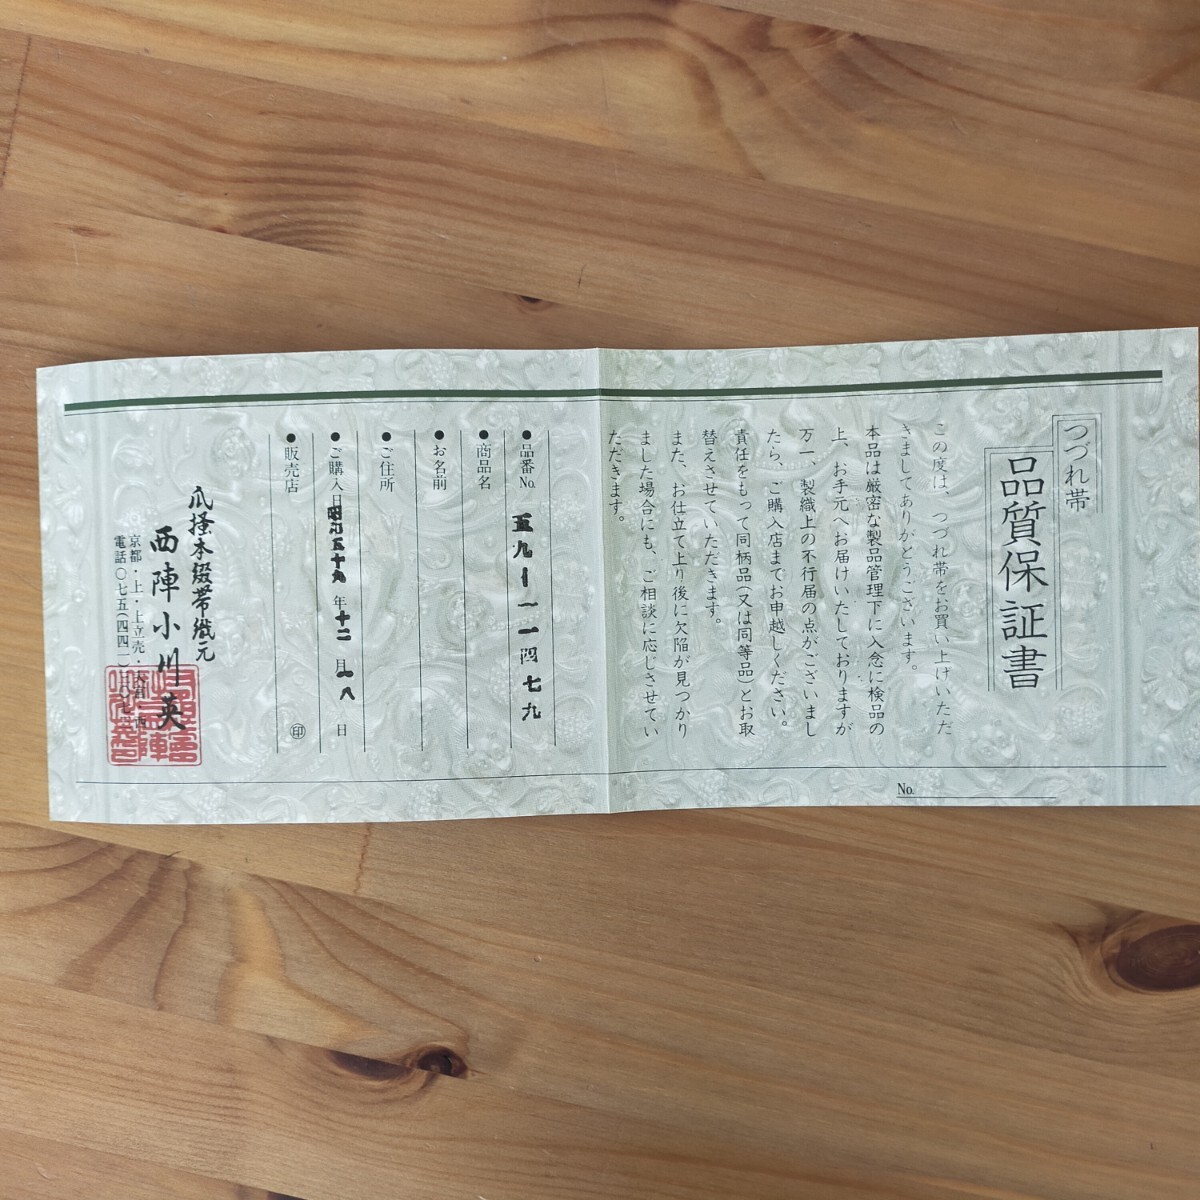 つづれ帯
品質保証書
この度は、つづれ帯をお買い上げいただ
きましてありがとうございます。
本品は厳密な製品管理下に入念に検品の
上、お手元へお届けいたしておりますが
万一、製織上の不行届の点がございまし
たら、ご購入店までお申越しください。
責任をもって同柄品(又は同等品)とお取
替えさせていただきます。
また、お仕立て上り後に欠陥が見つかり
ました場合にも、ご相談に応じさせてい
ただきます。
No.
●品番No. 五九-一一四七九
●商品名
●お名前
●ご住所
●ご購入日 昭和五十九年十二月 八日
●販売店 ㊞
爪掻本綴帯織元
西陣小川英
京都・上・上立売・
電話〇七五(四四一)